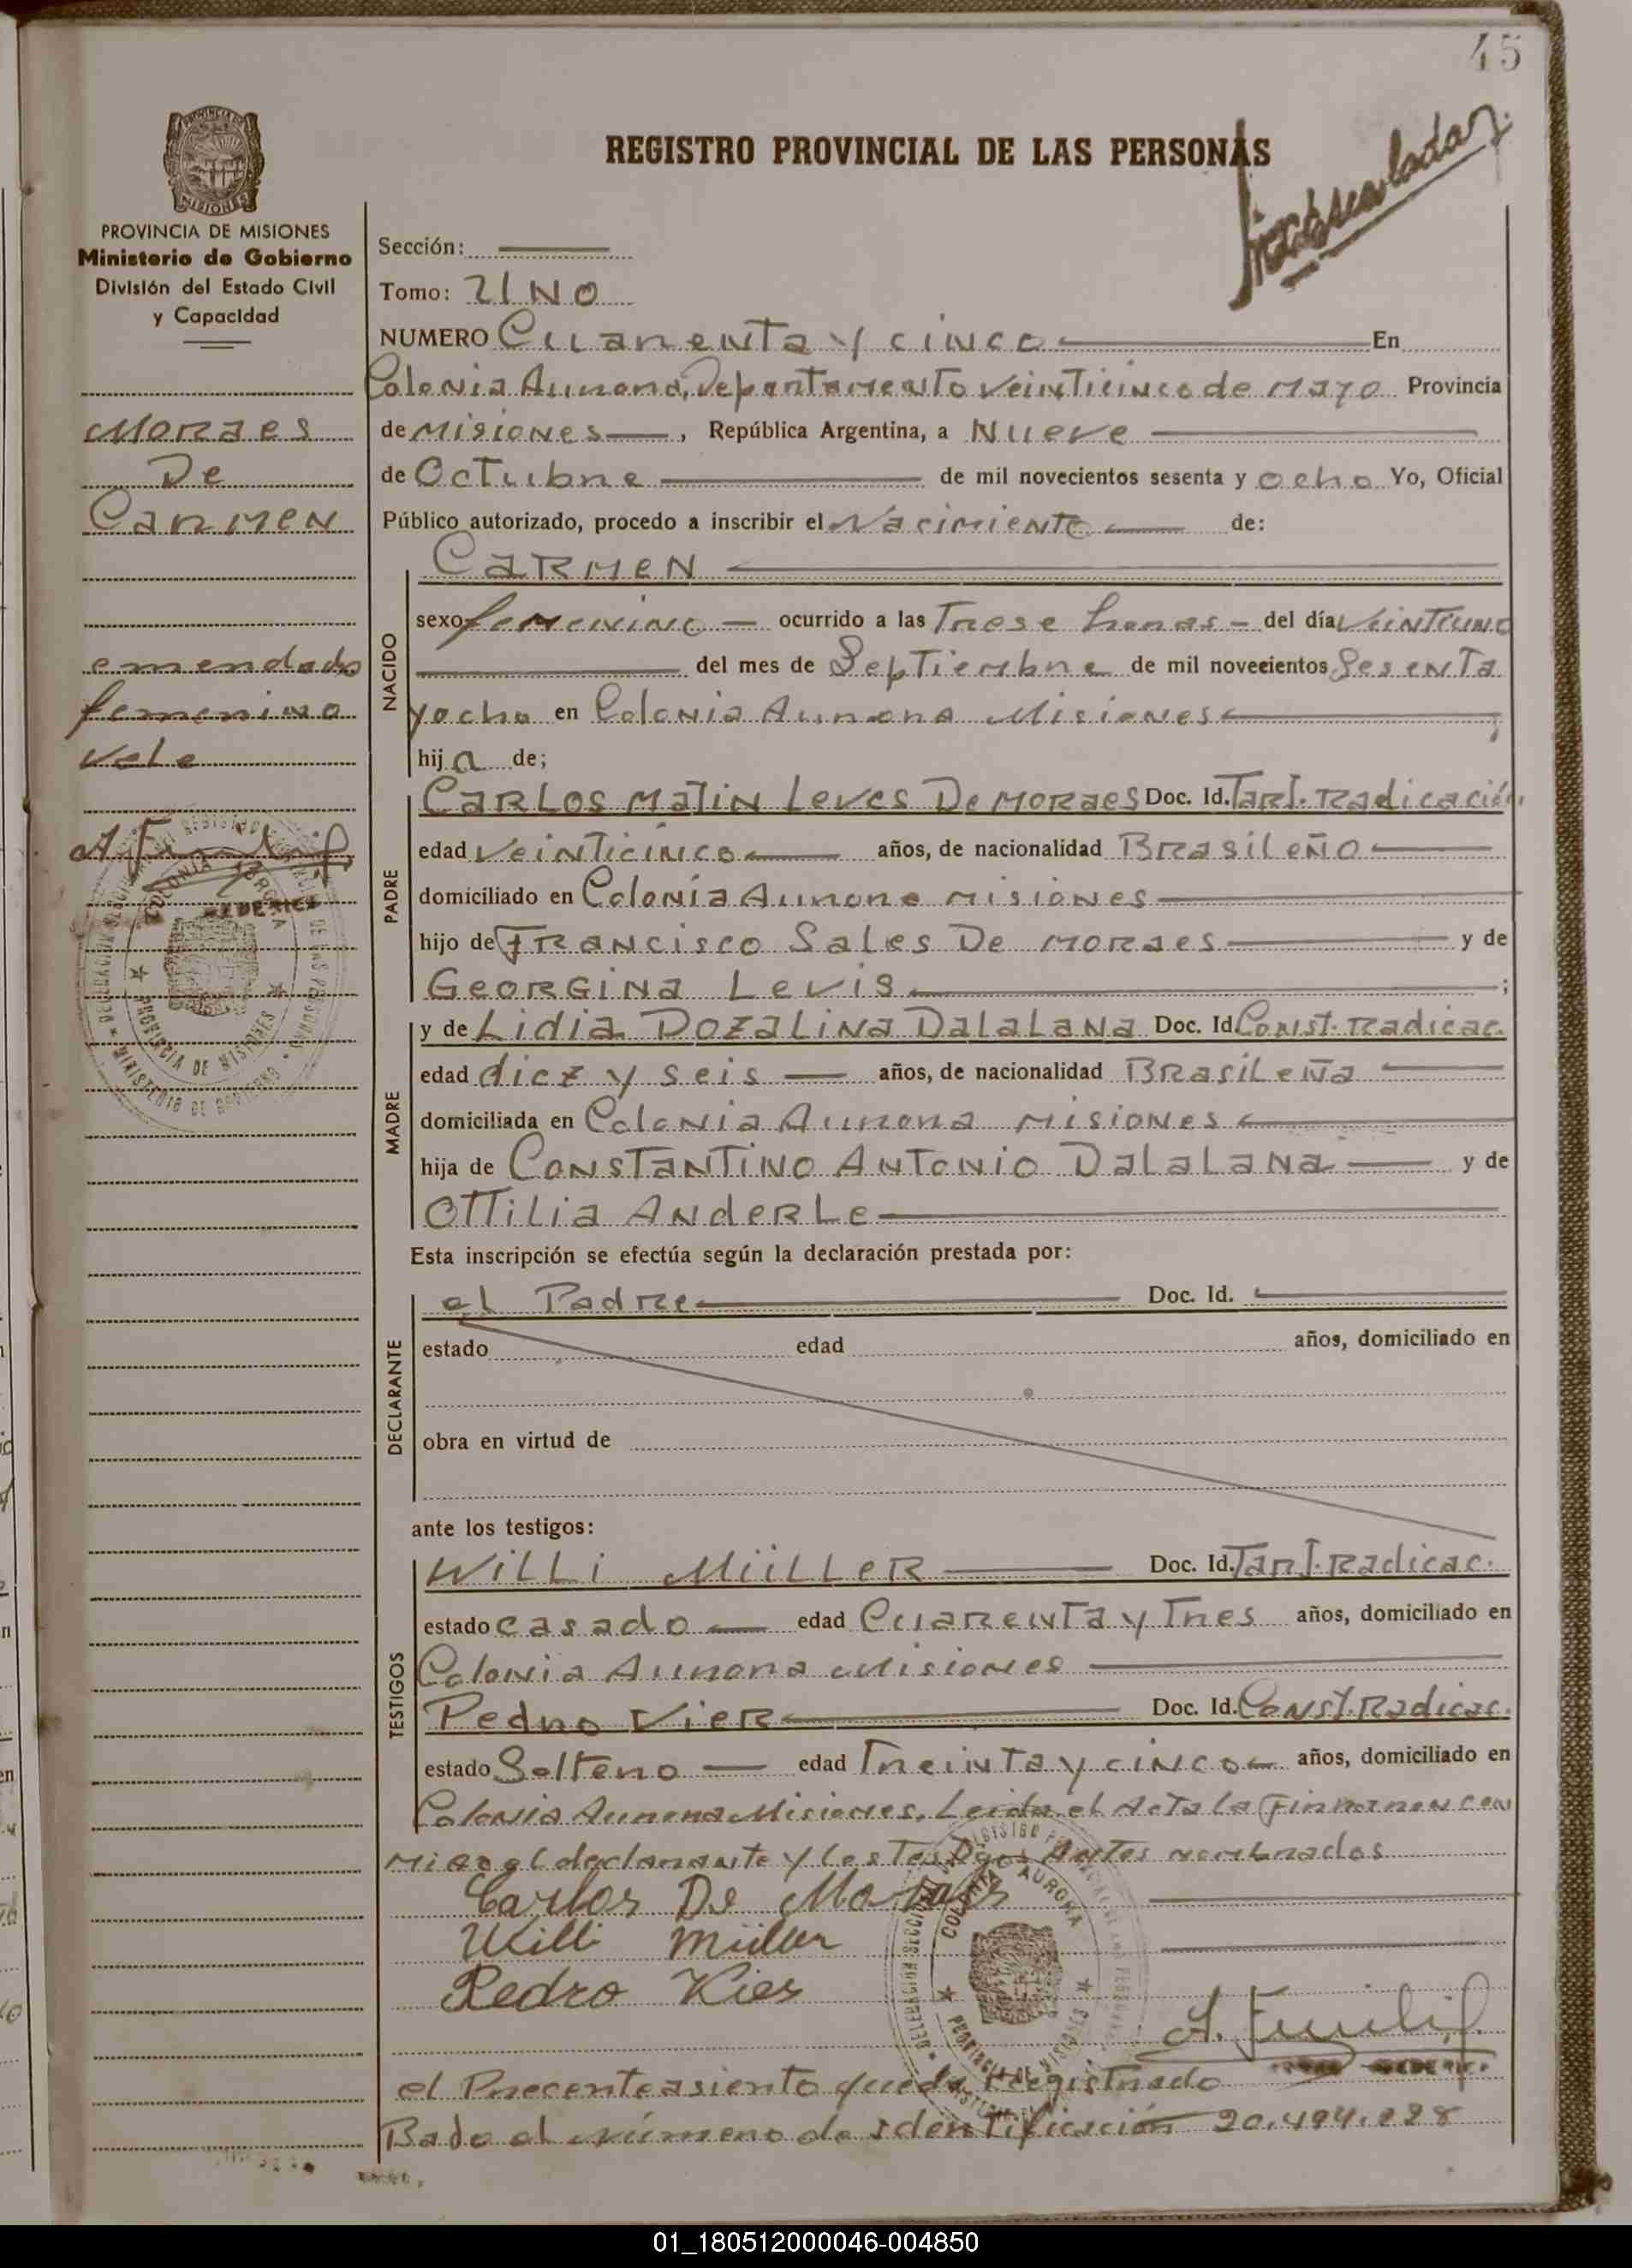 45
REGISTRO PROVINCIAL DE LAS PERSONAS
PROVINCIA DE MISIONES
Ministerio de Gobierno
División del Estado Civil
y Capacidad
Moraes
De
Carmen
emendado
femenino
vale
Sección:
Tomo: UNO
NUMERO Cuarenta y cinco En
Colonia Aurora, Departamento Veinticinco de Mayo Provincia
de Misiones, República Argentina, a Nueve
de Octubre de mil novecientos sesenta y ocho Yo, Oficial
Público autorizado, procedo a inscribir el Nacimiento de:
CARMEN
NACIDO
sexo femenino ocurrido a las Trese horas del día Veintiuno
del mes de Septiembre de mil novecientos Sesenta
y ocho en Colonia Aurora Misiones
hija de;
PADRE
CARLOS MATIN Leves De MORaes Doc. Id. Tarj. Radicación
edad Veinticinco años, de nacionalidad Brasileño
domiciliado en Colonia Aurora Misiones
hijo de FRANCISCO Sales De Moraes y de
GEORGINA Levis ;
MADRE
y de Lidia DOZALINA DALALANA Doc. Id. Const. Radicac.
edad diez y seis años, de nacionalidad Brasileña
domiciliada en Colonia Aurora Misiones
hija de CONSTANTINO ANTONIO DALALANA y de
OTTILIA ANDERLE
Esta inscripción se efectúa según la declaración prestada por:
DECLARANTE
el Padre Doc. Id.
estado edad años, domiciliado en
obra en virtud de
ante los testigos:
TESTIGOS
WILLI MÜLLER Doc. Id. Tarj. Radicac.
estado casado edad Cuarenta y Tres años, domiciliado en
Colonia Aurora Misiones
Pedro VIER Doc. Id. Const. Radicac.
estado Soltero edad Treinta y cinco años, domiciliado en
Colonia Aurora Misiones. Leida el Acta la Firmaron con
migo el declarante y los Testigos Antes nombrados
Carlos De Moraes
Willi Müller
Pedro Vier
COLONIA AURORA
PROVINCIA DE MISIONES
el Precente asiento queda Registrado
Bado el número de identificación 20.494.
01_180512000046-004850